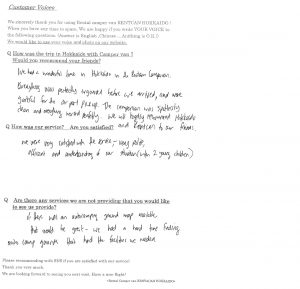 Customer Voices
We sincerely thank you for using Rental camper van RENTCAN HOKKAIDO !
When you have any time to spare, We are happy if you wrote YOUR VOICE to
the following questions. (Answer in English /Chinese ... Anything is O.K.)
We would like to use your voice and photo on our website.
Q How was the trip in Hokkaido with Camper van ?
Would you recommend your friends?
We had a wonderful time in Hokkaido in the Rentcan Campervan.
Everything was perfectly organised before we arrived, and were
grateful for the air port pickup. The campervan was spotlessly
clean and everything worked perfectly. We will highly recommend Hokkaido
and Rentcan to our friends.
Q How was our service? Are you satisfied?
We were very satisfied with the service, very polite,
efficient and understanding of our situation (with 2 young children)
Q Are there any services we are not providing that you would like
to see us provide?
If there was an auto camping ground map available,
that would be great - we had a hard time finding
auto camp grounds that had the facilities we needed
Please recommending with SNS if you are satisfied with our services!
Thank you very much.
We are looking forward to seeing you next visit. Have a nice flight!
Rental Camper van RENTACAN HOKKAIDO